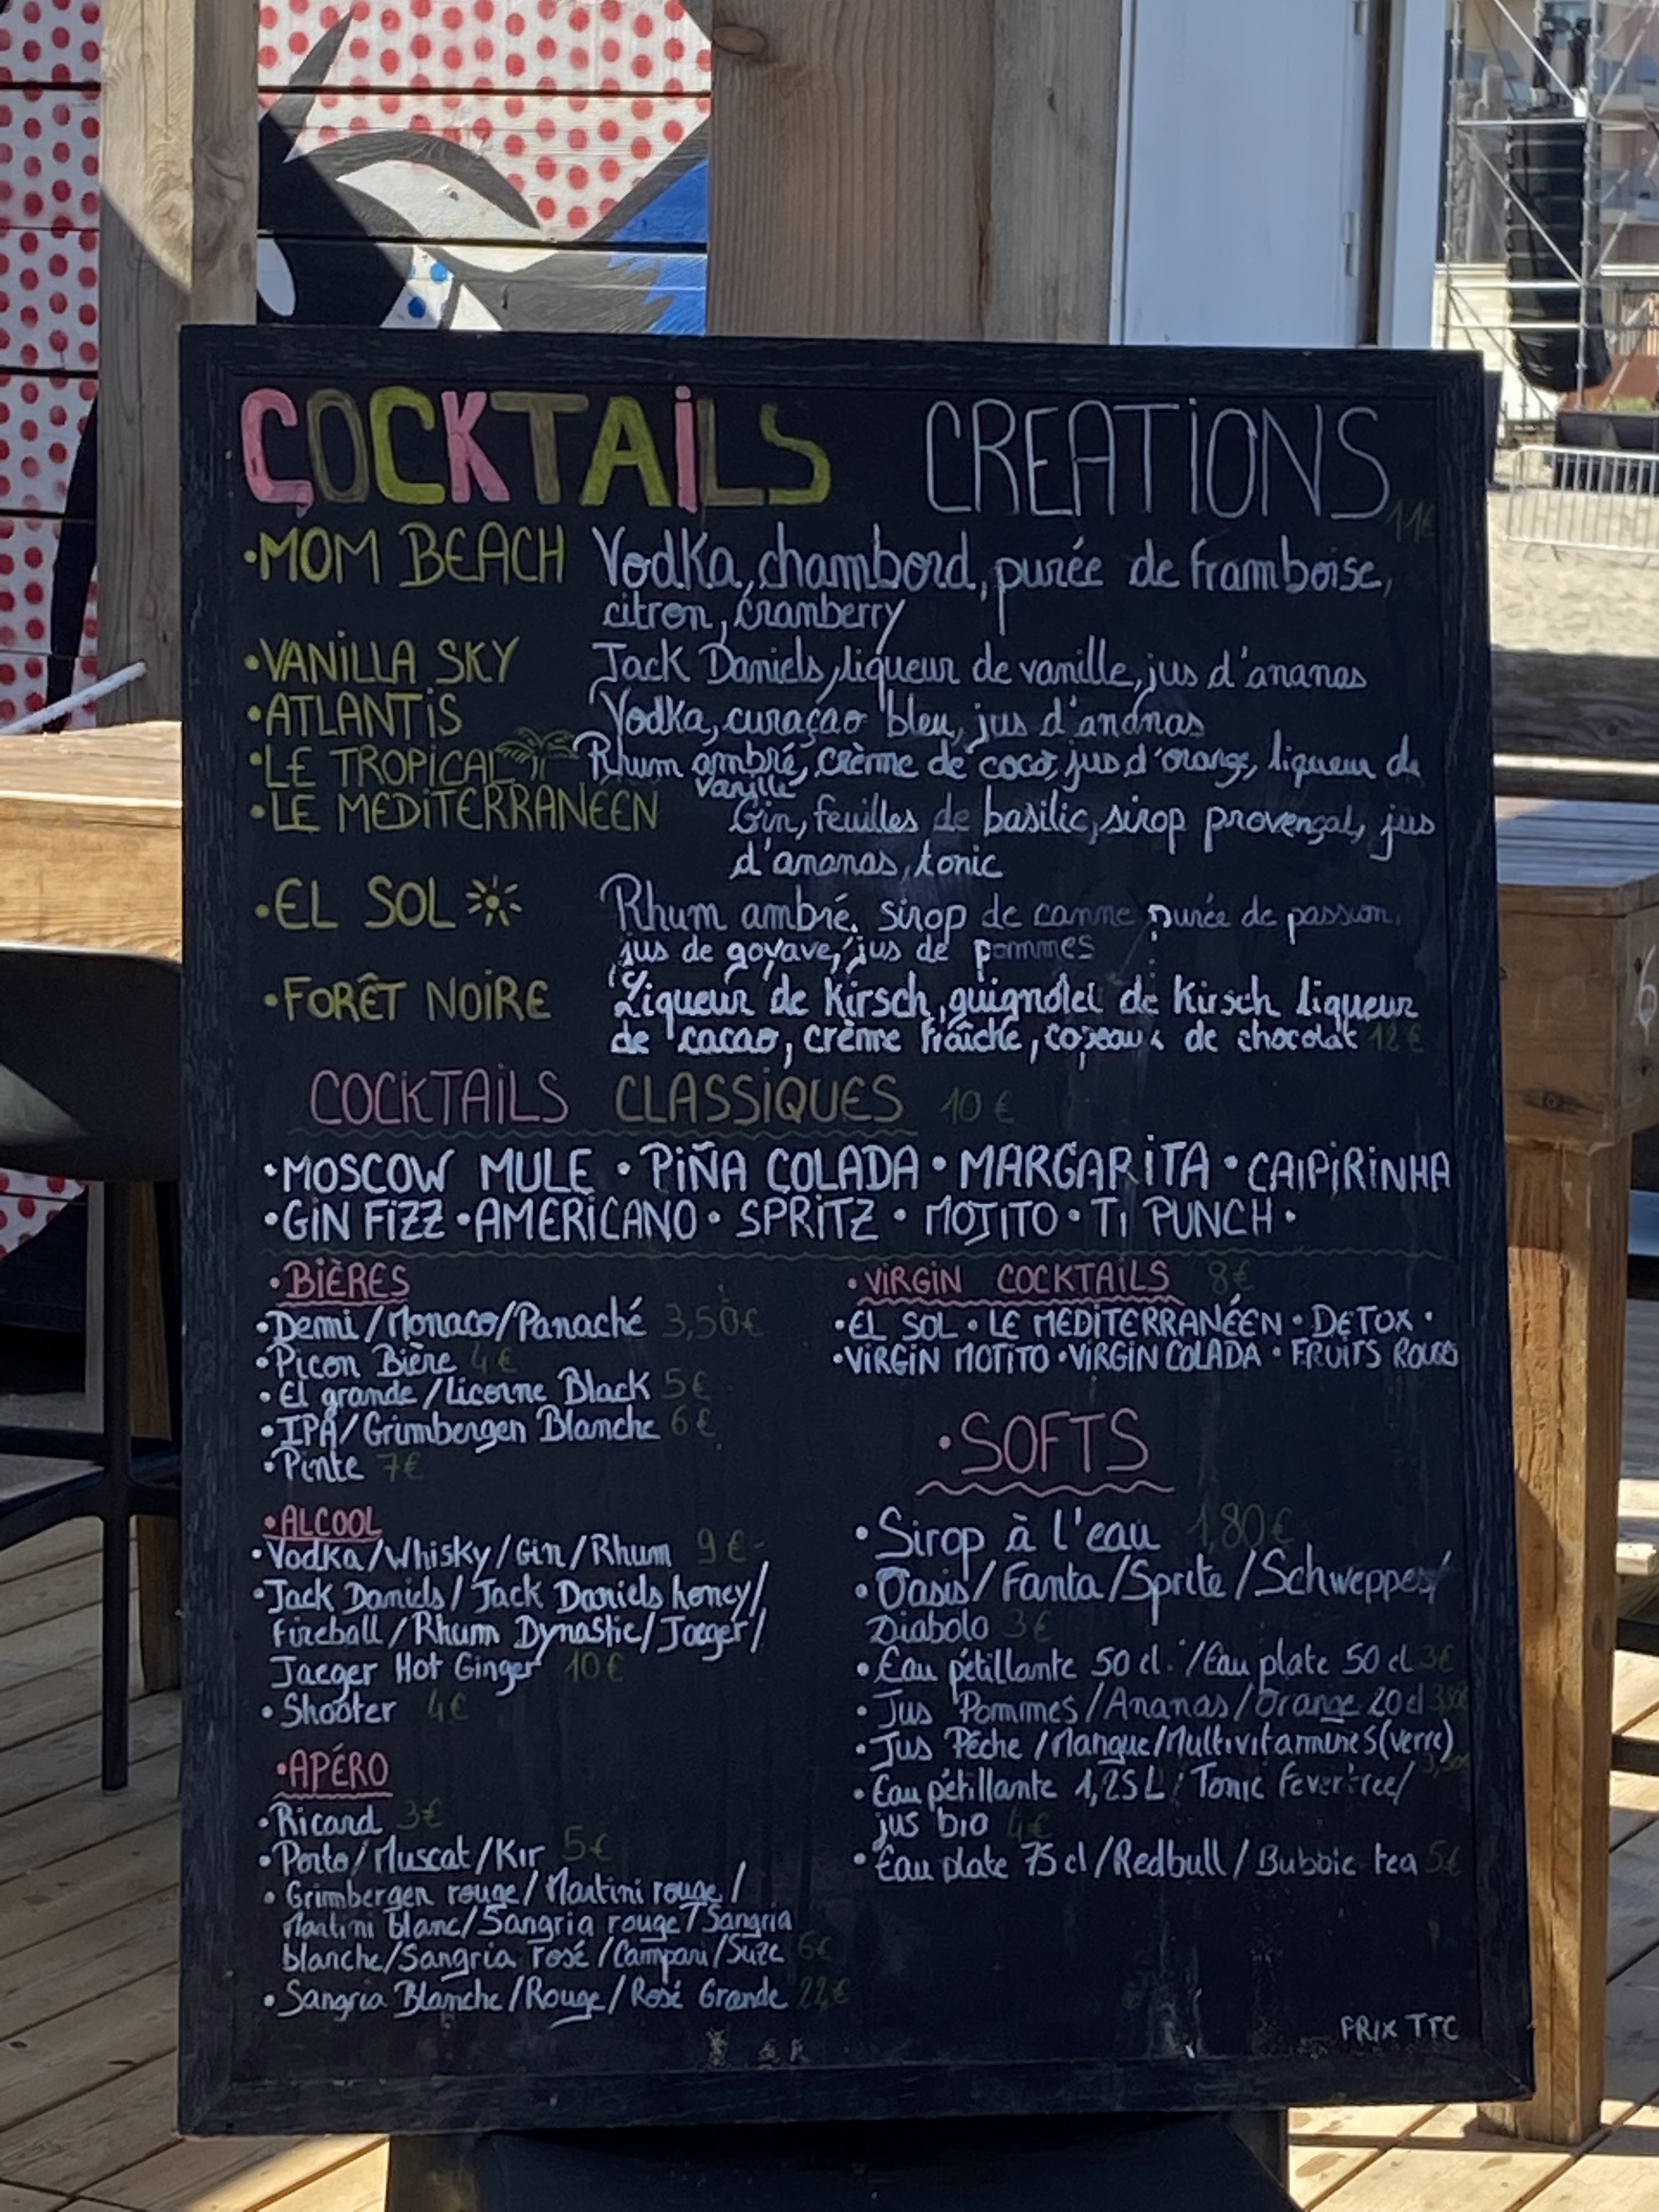 COCKTAiLS CREATiONS 11€
•MOM BEACH Vodka, chambord, purée de framboise,
citron, cramberry
•VANiLLA SKY Jack Daniels, liqueur de vanille, jus d'ananas
•ATLANTiS Vodka, curaçao bleu, jus d'ananas
•LE TROPiCAL Rhum ambré, crème de coco, jus d'orange, liqueur de
vanille
•LE MEDiTERRANÉEN Gin, feuilles de basilic, sirop provençal, jus
d'ananas, tonic
•EL SOL Rhum ambré, sirop de canne purée de passion,
jus de goyave, jus de pommes
•FORÊT NOiRE Liqueur de Kirsch, guignolet de Kirsch liqueur
de cacao, crème fraîche, copeaux de chocolat 12€
COCKTAiLS CLASSiQUES 10€
•MOSCOW MULE •PiÑA COLADA •MARGARiTA •CAiPiRiNHA
•GiN FiZZ •AMERiCANO • SPRiTZ • MOJiTO • Ti PUNCH •
•BiÈRES
•Demi/Monaco/Panaché 3,50€
•Picon Bière 4€
•El grande/Licorne Black 5€
•IPA/Grimbergen Blanche 6€
•Pinte 7€
•ALCOOL
•Vodka/Whisky/Gin/Rhum 9€
•Jack Daniels/Jack Daniels honey/
Fireball/Rhum Dynastie/Jaeger/
Jaeger Hot Ginger 10€
•Shooter 4€
•APÉRO
•Ricard 3€
•Porto/Muscat/Kir 5€
•Grimbergen rouge/Martini rouge/
Martini blanc/Sangria rouge/Sangria
blanche/Sangria rosé/Campari/Suze 6€
•Sangria Blanche/Rouge/Rosé Grande 22€
•ViRGiN COCKTAiLS 8€
•EL SOL • LE MEDiTERRANÉEN • DETOX •
•ViRGiN MOJiTO •ViRGiN COLADA • FRUiTS ROUGES
•SOFTS
•Sirop à l'eau 1,80€
•Oasis/Fanta/Sprite/Schweppes/
Diabolo 3€
•Eau pétillante 50 cl./Eau plate 50 cl 3€
•Jus Pommes/Ananas/Orange 20cl 3,50€
•Jus Pêche/Mangue/Multivitamines(verre)
3,50€
•Eau pétillante 1,25L/Tonic Fevertree/
jus bio 4€
•Eau plate 75cl/Redbull/Bubble tea 5€
PRIX TTC